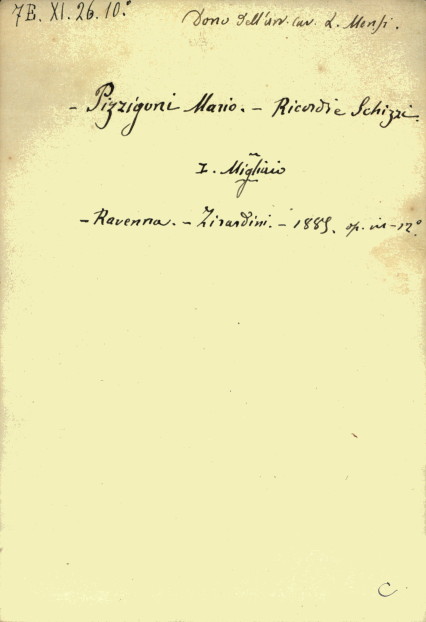 7E. XI. 26. 10.°
Dono dell'avv. cav. L. Mensi.
- Pizzigoni Mario. - Ricordi e Schizzi.
I. Migliaio
- Ravenna. - Zirardini. - 1885. op. in-12°
C